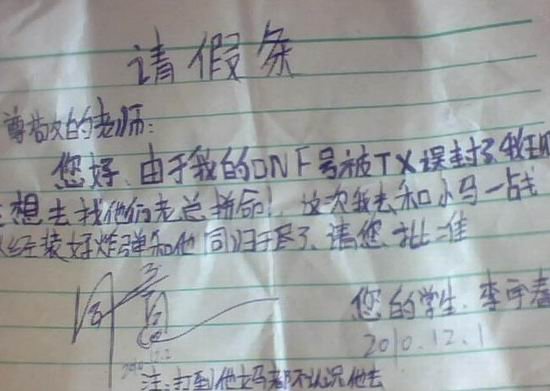 请假条
尊敬的老师:
您好.由于我的DNF号被TX误封了我现
在想去找他们老总拼命!这次我去和小马一战
经装好炸弹和他同归于尽了.请您批准
您的学生.李宇春
2010.12.1
2010.12.2
注:打到他妈都不认识他去